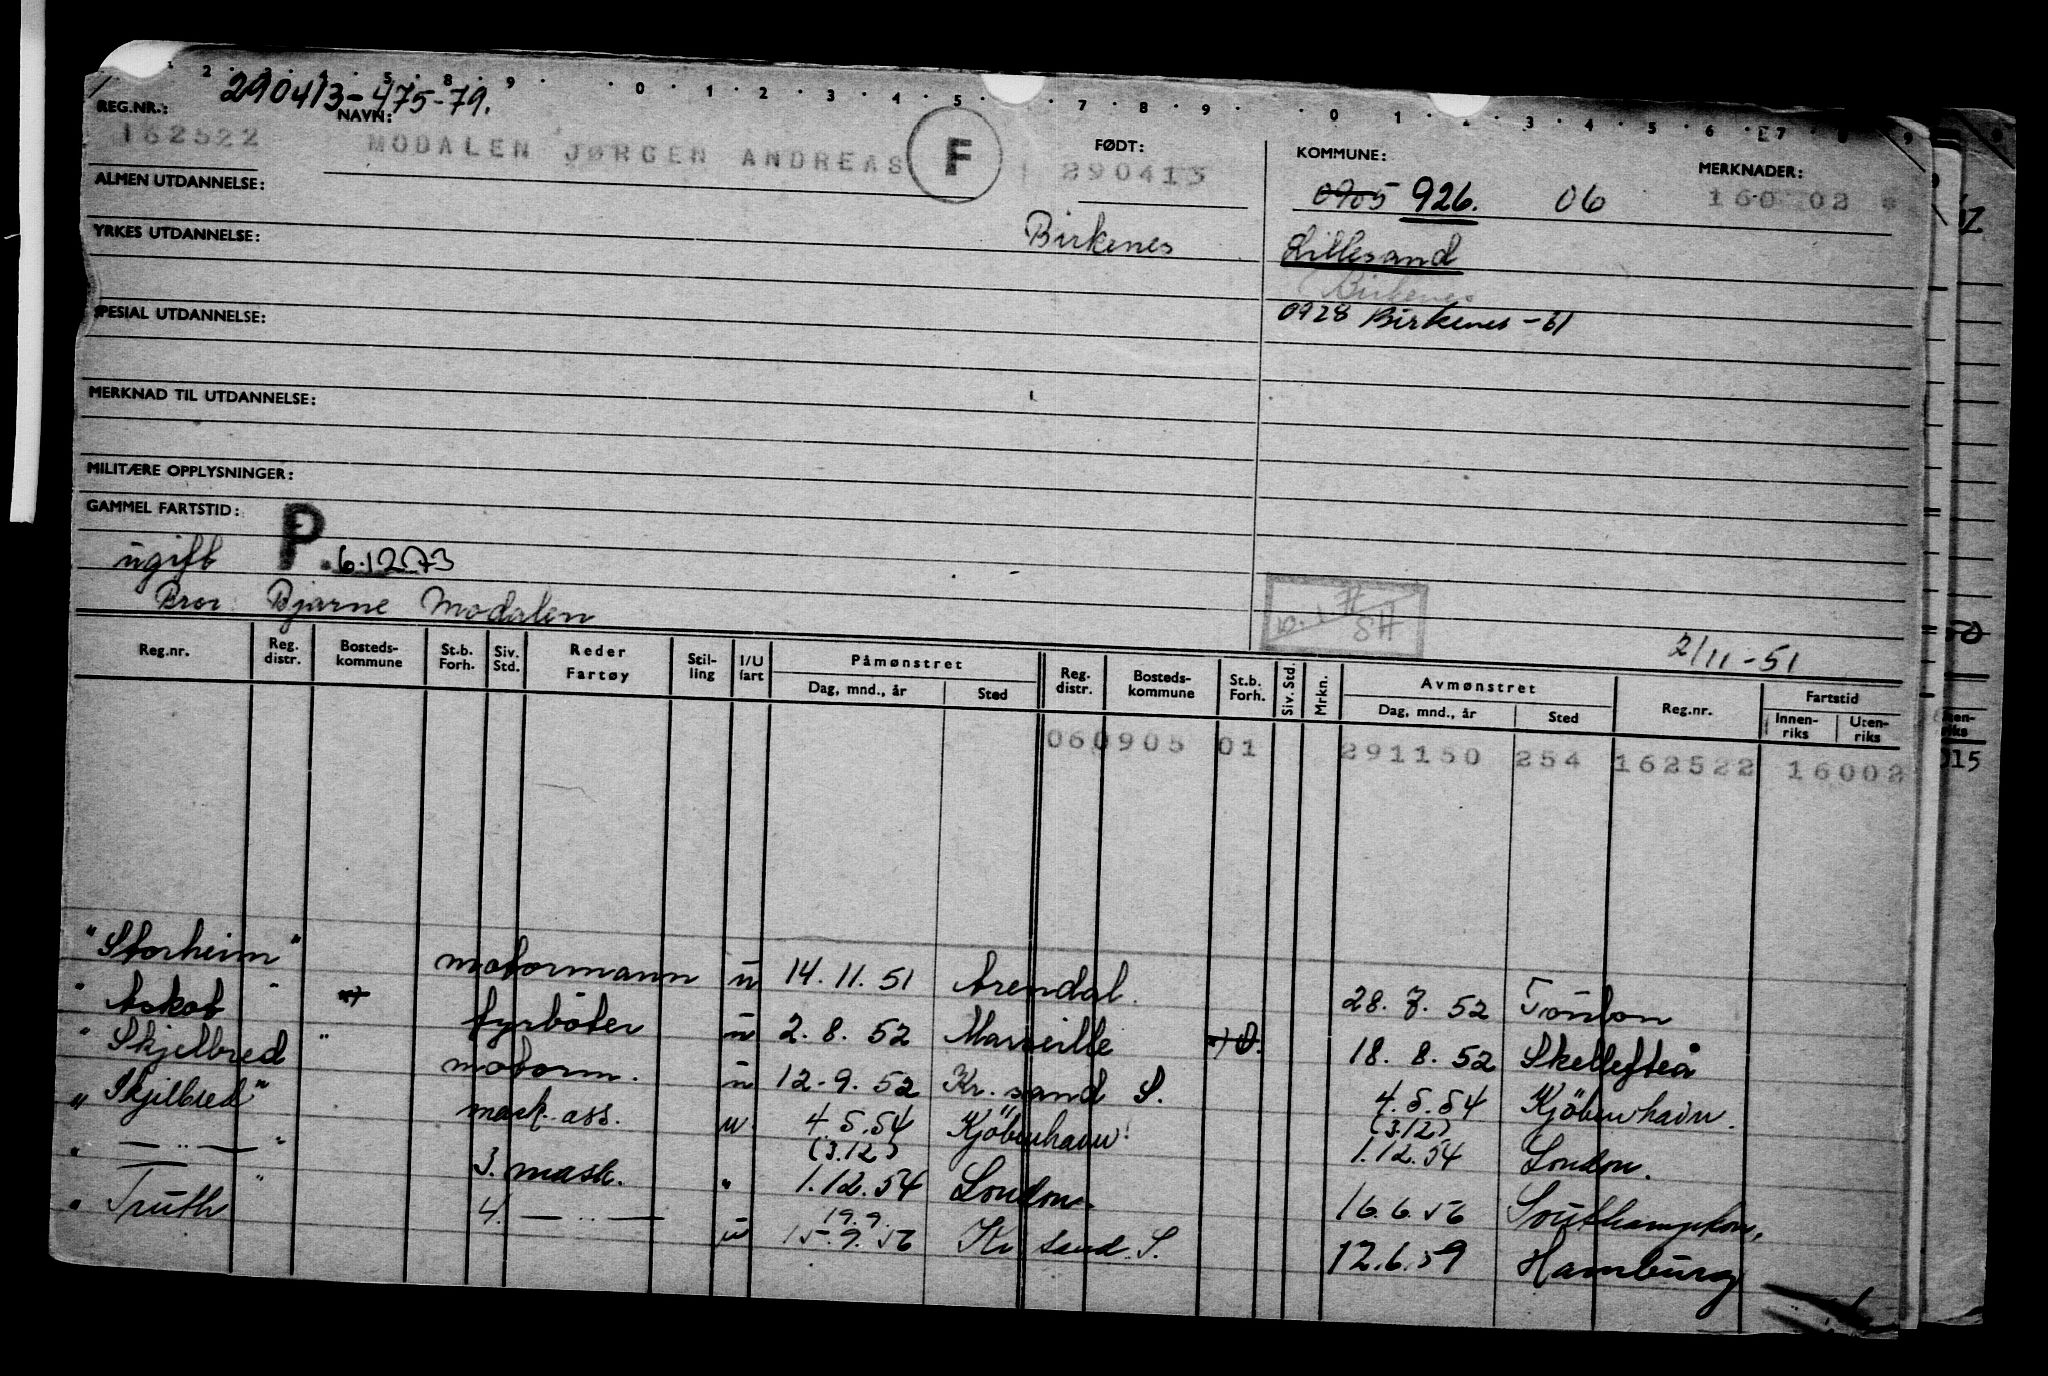 290413-475-79.
REG.NR.: NAVN: FØDT: KOMMUNE: MERKNADER:
162522 MODALEN JØRGEN ANDREAS F 290413 0905 926. 06 160 02 *
ALMEN UTDANNELSE:
YRKES UTDANNELSE: Birkenes Lillesand
Birkenes
SPESIAL UTDANNELSE: 0928 Birkenes - 61
MERKNAD TIL UTDANNELSE:
MILITÆRE OPPLYSNINGER:
GAMMEL FARTSTID:
ugift P. 6.1273
Bror: Bjarne Modalen
2/11-51
Reg.nr. Reg. distr. Bosteds-kommune St.b. Forh. Siv. Std. Reder Fartøy Stil-ling I/U fart Påmønstret Dag, mnd., år Sted Reg. distr. Bosteds-kommune St.b. Forh. Siv. Std. Mrkn. Avmønstret Dag, mnd., år Sted Reg.nr. Fartstid Innen-riks Uten-riks
060905 01 291150 254 162522 16002
"Storheim" motormann u 14.11.51 Arendal. 28.7.52 Toulon
"Askot" fyrböter u 2.8.52 Marseille 18.8.52 Skellefteå
"Skjelbred" motorm. u 12.9.52 Kr.sand S. 4.5.54 Kjöbenhavn.
"Skjelbred" mask. ass. u 4 5.54 Kjöbenhavn. (3.12) 1.12.54 London.
" — .. — " 3. mask. " (3.12) 1.12.54 London. 16.6.56 Southampton.
"Truth" 4. — .. — u 19.9. 15.9.56 Kr sand. S. 12.6.59 Hamburg